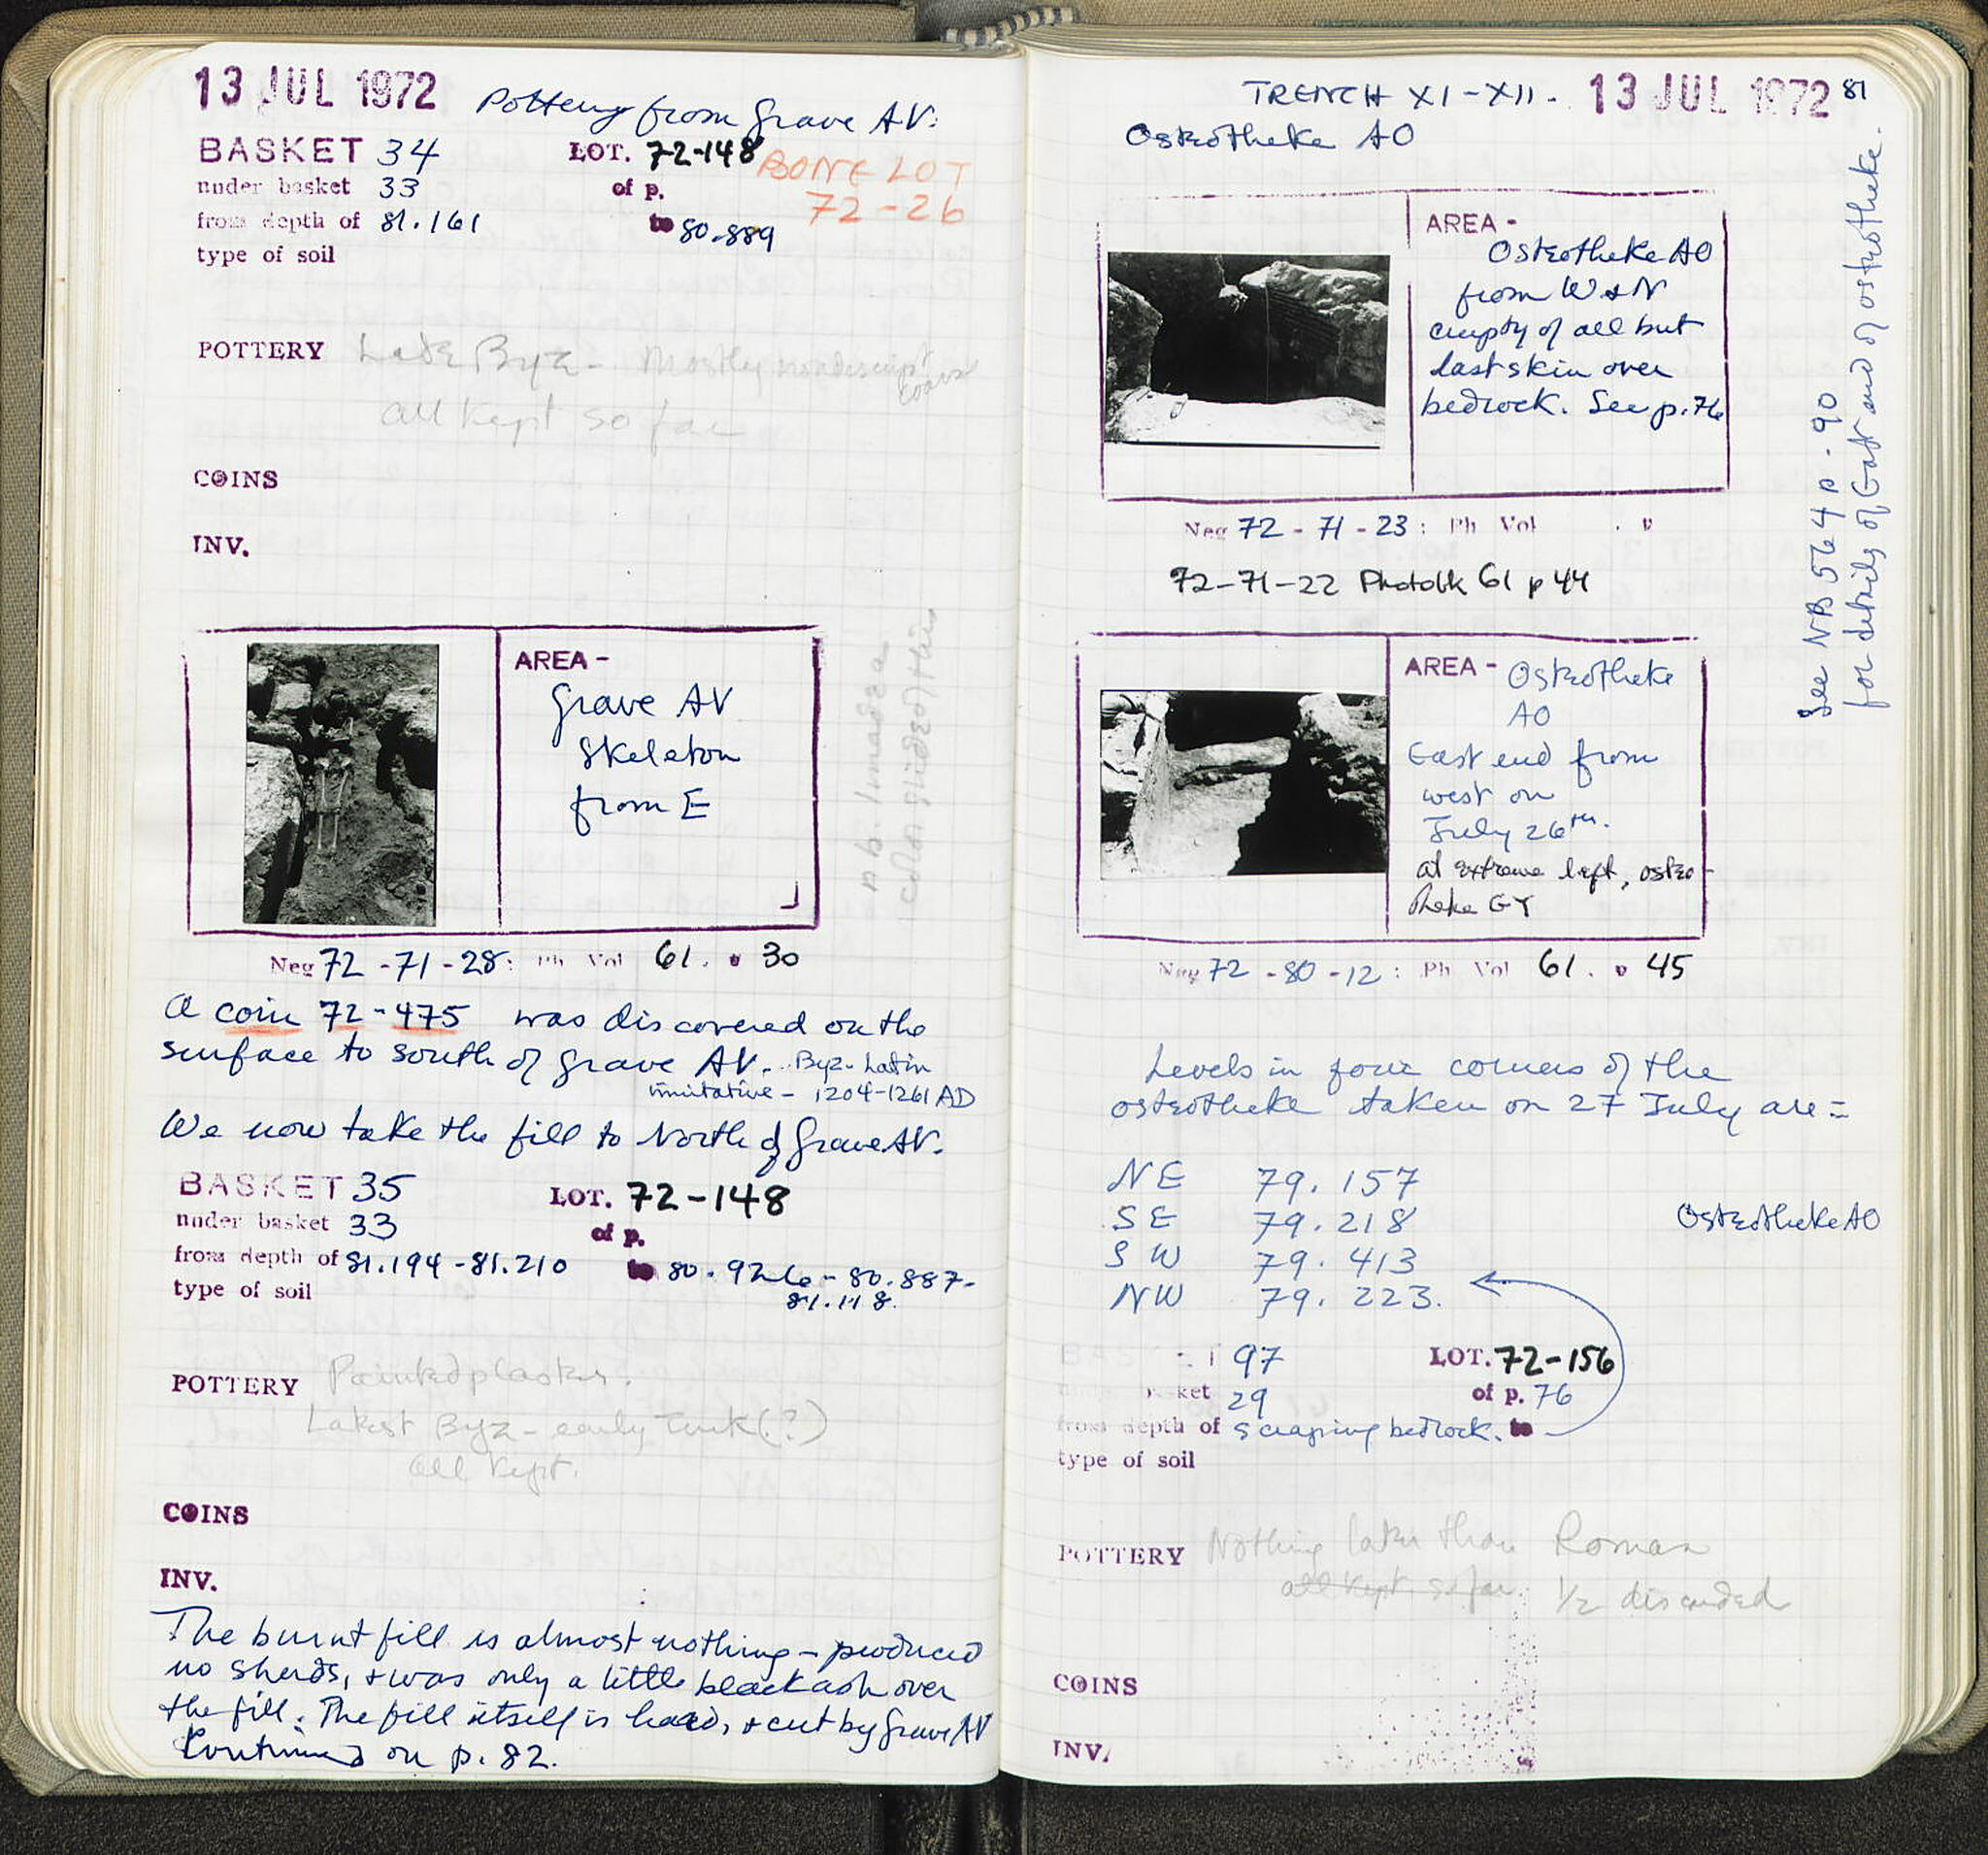 13 JUL 1972
Pottery from Grave AV:
BASKET 34 LOT. 72-148 BONE LOT
under basket 33 of p. 72-26
from depth of 81.161 to 80.889
type of soil
POTTERY Late Byz - Mostly nondescript
coarse
all kept so far
COINS
INV.
AREA -
Grave AV
Skeleton
from E
Neg 72-71-28: Ph Vol 61. p 30
A coin 72-475 was discovered on the
surface to south of grave AV. Byz. Latin
imitative - 1204-1261 AD
We now take the fill to North of Grave AV.
BASKET 35 LOT. 72-148
under basket 33 of p.
from depth of 81.194-81.210 to 80.926-80.887-
81.118.
type of soil
POTTERY Painted plaster.
Latest Byz - early Turk (?)
all kept.
COINS
INV.
The burnt fill is almost nothing - produced
no sherds, & was only a little black ash over
the fill. The fill itself is hard, & cut by Grave AV
Continued on p. 82.
TRENCH XI-XII. 13 JUL 1972 81
Osteotheke AO
AREA -
Osteotheke AO
from W & N
empty of all but
last skin over
bedrock. See p. 76
Neg 72-71-23: Ph Vol . p
72-71-22 Photobk 61 p 44
See NB 564 p. 90
for details of East end of osteotheke.
AREA - Osteotheke
AO
East end from
west on
July 26th.
at extreme left, osteo-
theke GY
Neg 72-80-12: Ph Vol 61. p 45
Levels in four corners of the
osteotheke taken on 27 July are =
NE 79.157
SE 79.218 Osteotheke AO
SW 79.413
NW 79.223.
BASKET 97 LOT. 72-156
under basket 29 of p. 76
from depth of scraping bedrock. to
type of soil
POTTERY Nothing later than Roman
all kept so far. 1/2 discarded
COINS
INV.